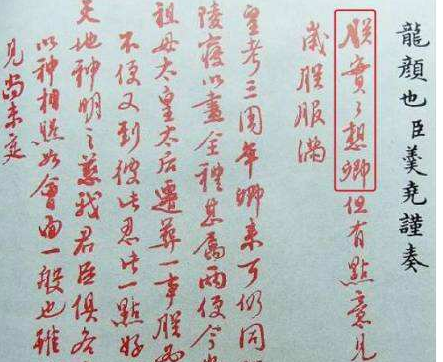 龍顏也臣羹堯謹奏
朕實實想卿但有點意見
歲朕服滿
皇考三周年卿來可仍同
陵寢以盡全禮甚屬兩便今
祖母太皇太后遷葬一事朕
不便又到彼此忍此一點好
天地神明之慈我君臣俱各
以神相照如會面一般也雖
見尚未定